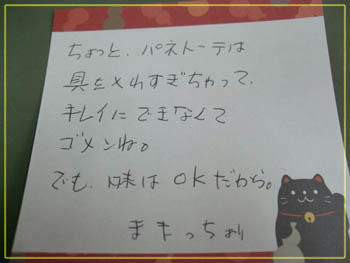 ちょっと、パネトーテは
具を入れすぎちゃって、
キレイにできなくて
ゴメンね。
でも、味はOKだから。
まきっちょり